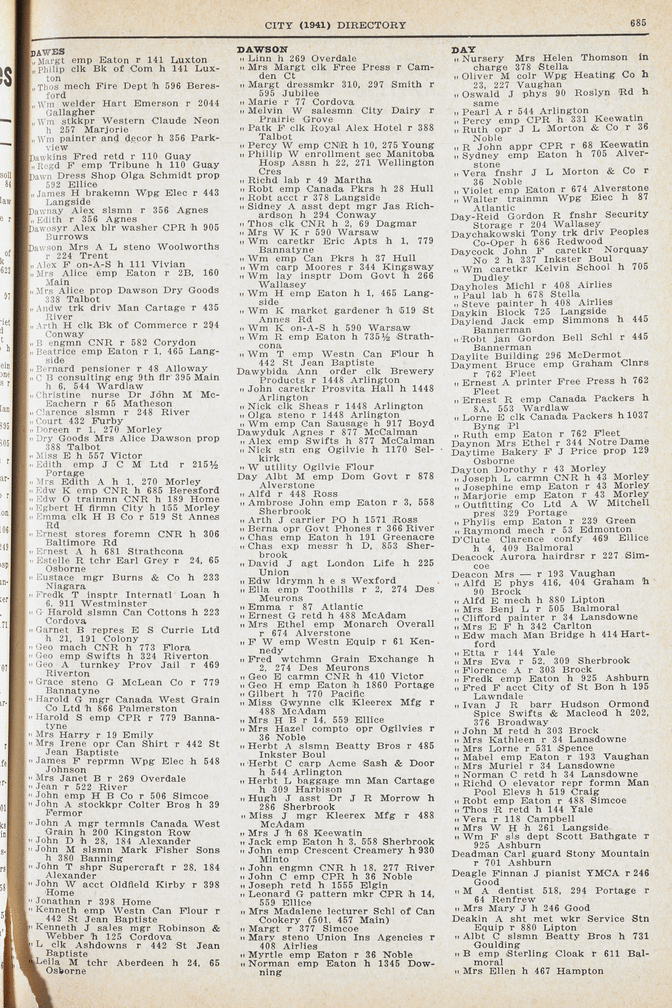 CITY (1941) DIRECTORY
685
DAWES
" Margt emp Eaton r 141 Luxton
" Philip clk Bk of Com h 141 Lux-
ton
" Thos mech Fire Dept h 596 Beres-
ford
" Wm welder Hart Emerson r 2044
Gallagher
" Wm stkkpr Western Claude Neon
h 257 Marjorie
" Wm painter and decor h 356 Park-
view
Dawkins Fred retd r 110 Guay
" Regd F emp Tribune h 110 Guay
Dawn Dress Shop Olga Schmidt prop
592 Ellice
" James H brakemn Wpg Elec r 443
Langside
Dawnay Alex slsmn r 356 Agnes
" Edith r 356 Agnes
Dawosyr Alex blr washer CPR h 905
Burrows
Dawson Mrs A L steno Woolworths
r 224 Trent
" Alex F on-A-S h 111 Vivian
" Mrs Alice emp Eaton r 2B, 160
Main
" Mrs Alice prop Dawson Dry Goods
338 Talbot
" Andw trk driv Man Cartage r 435
River
" Arth H clk Bk of Commerce r 294
Conway
" B engmn CNR r 582 Corydon
" Beatrice emp Eaton r 1, 465 Lang-
side
" Bernard pensioner r 48 Alloway
" C B consulting eng 9th flr 395 Main
h 6, 544 Wardlaw
" Christine nurse Dr John M Mc-
Eachern r 65 Matheson
" Clarence slsmn r 248 River
" Court 432 Furby
" Doreen r 1, 270 Morley
" Dry Goods Mrs Alice Dawson prop
388 Talbot
" Miss E h 557 Victor
" Edith emp J C M Ltd r 215½
Portage
" Mrs Edith A h 1, 270 Morley
" Edw K emp CNR h 685 Beresford
" Edw O trainmn CNR h 189 Home
" Egbert H firmn City h 155 Morley
" Emma clk H B Co r 519 St Annes
Rd
" Ernest stores foremn CNR h 306
Baltimore Rd
" Ernest A h 681 Strathcona
" Estelle R tchr Earl Grey r 24, 65
Osborne
" Eustace mgr Burns & Co h 233
Niagara
" Fredk T insptr Internatl Loan h
6, 911 Westminster
" G Harold slsmn Can Cottons h 223
Cordova
" Garnet B repres E S Currie Ltd
h 21, 191 Colony
" Geo mach CNR h 773 Flora
" Geo emp Swifts h 324 Riverton
" Geo A turnkey Prov Jail r 469
Riverton
" Grace steno G McLean Co r 779
Bannatyne
" Harold G mgr Canada West Grain
Co Ltd h 866 Palmerston
" Harold S emp CPR r 779 Banna-
tyne
" Mrs Harry r 19 Emily
" Mrs Irene opr Can Shirt r 442 St
Jean Baptiste
" James F reprmn Wpg Elec h 548
Johnson
" Mrs Janet B r 269 Overdale
" Jean r 522 River
" John emp H B Co r 506 Simcoe
" John A stockkpr Colter Bros h 39
Fermor
" John A mgr termnls Canada West
Grain h 200 Kingston Row
" John D h 28, 184 Alexander
" John M slsmn Mark Fisher Sons
h 380 Banning
" John T shpr Supercraft r 28, 184
Alexander
" John W acct Oldfield Kirby r 398
Home
" Jonathan r 398 Home
" Kenneth emp Westn Can Flour r
442 St Jean Baptiste
" Kenneth J sales mgr Robinson &
Webber h 125 Cordova
" L clk Ashdowns r 442 St Jean
Baptiste
" Leila M tchr Aberdeen h 24, 65
Osborne
DAWSON
" Linn h 269 Overdale
" Mrs Margt clk Free Press r Cam-
den Ct
" Margt dressmkr 310, 297 Smith r
595 Jubilee
" Marie r 77 Cordova
" Melvin W salesmn City Dairy r
Prairie Grove
" Patk F clk Royal Alex Hotel r 388
Talbot
" Percy W emp CNR h 10, 275 Young
" Phillip W enrollment sec Manitoba
Hosp Assn h 22, 271 Wellington
Cres
" Richd lab r 49 Martha
" Robt emp Canada Pkrs h 28 Hull
" Robt acct r 378 Langside
" Sidney A asst dept mgr Jas Rich-
ardson h 294 Conway
" Thos clk CNR h 2, 69 Dagmar
" Mrs W K r 590 Warsaw
" Wm caretkr Eric Apts h 1, 779
Bannatyne
" Wm emp Can Pkrs h 37 Hull
" Wm carp Moores r 344 Kingsway
" Wm lay insptr Dom Govt h 266
Wallasey
" Wm H emp Eaton h 1, 465 Lang-
side
" Wm K market gardener h 519 St
Annes Rd
" Wm K on-A-S h 590 Warsaw
" Wm R emp Eaton h 735½ Strath-
cona
" Wm T emp Westn Can Flour h
442 St Jean Baptiste
Dawybida Ann order clk Brewery
Products r 1448 Arlington
" John caretkr Prosvita Hall h 1448
Arlington
" Nick clk Sheas r 1448 Arlington
" Olga steno r 1448 Arlington
" Wm emp Can Sausage h 917 Boyd
Dawyduk Agnes r 877 McCalman
" Alex emp Swifts h 877 McCalman
" Nick stn eng Ogilvie h 1170 Sel-
kirk
" W utility Ogilvie Flour
Day Albt M emp Dom Govt r 878
Alverstone
" Alfd r 448 Ross
" Ambrose John emp Eaton r 3, 558
Sherbrook
" Arth J carrier PO h 1571 Ross
" Berna opr Govt Phones r 366 River
" Chas emp Eaton h 191 Greenacre
" Chas exp messr h D, 853 Sher-
brook
" David J agt London Life h 225
Union
" Edw ldrymn h e s Wexford
" Ella emp Toothills r 2, 274 Des
Meurons
" Emma r 87 Atlantic
" Ernest G retd h 488 McAdam
" Mrs Ethel emp Monarch Overall
r 674 Alverstone
" F W emp Westn Equip r 61 Ken-
nedy
" Fred wtchmn Grain Exchange h
2, 274 Des Meurons
" Geo E carmn CNR h 410 Victor
" Geo H emp Eaton h 1860 Portage
" Gilbert h 770 Pacific
" Miss Gwynne clk Kleerex Mfg r
488 McAdam
" Mrs H B r 14, 559 Ellice
" Mrs Hazel compto opr Ogilvies r
36 Noble
" Herbt A slsmn Beatty Bros r 485
Inkster Boul
" Herbt C carp Acme Sash & Door
h 544 Arlington
" Herbt L baggage mn Man Cartage
h 309 Harbison
" Hugh J asst Dr J R Morrow h
286 Sherbrook
" Miss J mgr Kleerex Mfg r 488
McAdam
" Mrs J h 68 Keewatin
" Jack emp Eaton h 3, 558 Sherbrook
" John emp Crescent Creamery h 930
Minto
" John engmn CNR h 18, 277 River
" John C emp CPR h 36 Noble
" Joseph retd h 1555 Elgin
" Leonard G pattern mkr CPR h 14,
559 Ellice
" Mrs Madalene lecturer Schl of Can
Cookery (501, 457 Main)
" Margt r 377 Simcoe
" Mary steno Union Ins Agencies r
408 Airlies
" Myrtle emp Eaton r 36 Noble
" Norman emp Eaton h 1345 Dow-
ning
DAY
" Nursery Mrs Helen Thomson in
charge 378 Stella
" Oliver M colr Wpg Heating Co h
23, 227 Vaughan
" Oswald J phys 90 Roslyn Rd h
same
" Pearl A r 544 Arlington
" Percy emp CPR h 331 Keewatin
" Ruth opr J L Morton & Co r 36
Noble
" R John appr CPR r 68 Keewatin
" Sydney emp Eaton h 705 Alver-
stone
" Vera fnshr J L Morton & Co r
36 Noble
" Violet emp Eaton r 674 Alverstone
" Walter trainmn Wpg Elec h 87
Atlantic
Day-Reid Gordon R fnshr Security
Storage r 204 Wallasey
Daychakowski Tony trk driv Peoples
Co-Oper h 686 Redwood
Daycock John F caretkr Norquay
No 2 h 337 Inkster Boul
" Wm caretkr Kelvin School h 705
Dudley
Dayholes Michl r 408 Airlies
" Paul lab h 678 Stella
" Steve painter h 408 Airlies
Daykin Block 725 Langside
Daylend Jack emp Simmons h 445
Bannerman
" Robt jan Gordon Bell Schl r 445
Bannerman
Daylite Building 296 McDermot
Dayment Bruce emp Graham Clnrs
r 762 Fleet
" Ernest A printer Free Press h 762
Fleet
" Ernest R emp Canada Packers h
8A, 553 Wardlaw
" Lorne E clk Canada Packers h 1037
Byng Pl
" Ruth emp Eaton r 762 Fleet
Daynon Mrs Ethel r 344 Notre Dame
Daytime Bakery F J Price prop 129
Osborne
Dayton Dorothy r 43 Morley
" Joseph L carmn CNR h 43 Morley
" Josephine emp Eaton r 43 Morley
" Marjorie emp Eaton r 43 Morley
" Outfitting Co Ltd A W Mitchell
pres 329 Portage
" Phylis emp Eaton r 239 Green
" Raymond mech r 53 Edmonton
D'Clute Clarence confy 469 Ellice
h 4, 409 Balmoral
Deacock Aurora hairdrsr r 227 Sim-
coe
Deacon Mrs — r 193 Vaughan
" Alfd E phys 416, 404 Graham h
90 Brock
" Alfd E mech h 880 Lipton
" Mrs Benj L r 505 Balmoral
" Clifford painter r 34 Lansdowne
" Mrs E F h 342 Carlton
" Edw mach Man Bridge h 414 Hart-
ford
" Etta r 144 Yale
" Mrs Eva r 52, 309 Sherbrook
" Florence A r 303 Brock
" Fredk emp Eaton h 925 Ashburn
" Fred F acct City of St Bon h 195
Lawndale
" Ivan J R barr Hudson Ormond
Spice Swifts & Macleod h 202,
376 Broadway
" John M retd h 303 Brock
" Mrs Kathleen r 34 Lansdowne
" Mrs Lorne r 531 Spence
" Mabel emp Eaton r 193 Vaughan
" Mrs Muriel r 34 Lansdowne
" Norman C retd h 34 Lansdowne
" Richd O elevator repr formn Man
Pool Elevs h 519 Craig
" Robt emp Eaton r 488 Simcoe
" Thos R retd h 144 Yale
" Vera r 118 Campbell
" Mrs W H h 261 Langside
" Wm F sls dept Scott Bathgate r
925 Ashburn
Deadman Carl guard Stony Mountain
r 701 Ashburn
Deagle Finnan J pianist YMCA r 246
Good
" M A dentist 518, 294 Portage r
64 Renfrew
" Mrs Mary J h 246 Good
Deakin A sht met wkr Service Stn
Equip r 880 Lipton
" Albt C slsmn Beatty Bros h 731
Goulding
" B emp Sterling Cloak r 611 Bal-
moral
" Mrs Ellen h 467 Hampton